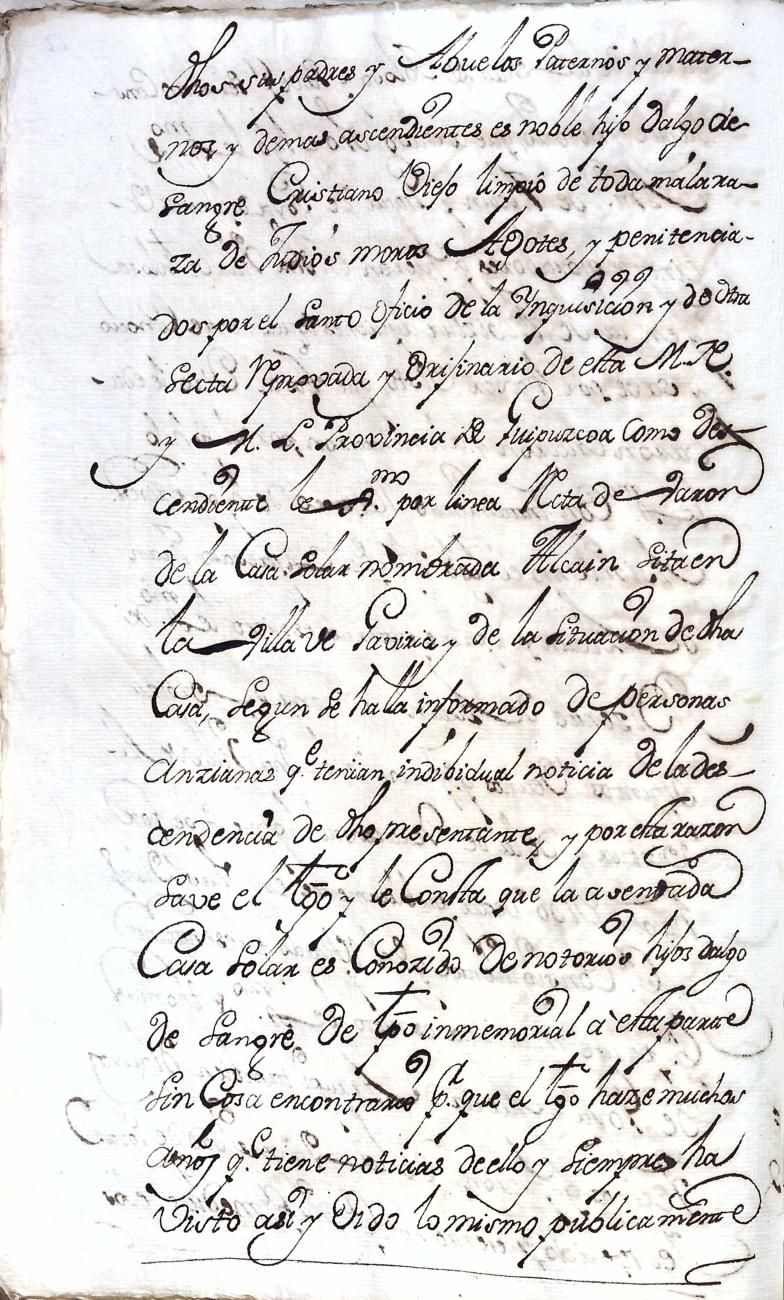 dhos sus padres y Abuelos Paternos y mater-
nos, y demas ascendientes es noble hijo dalgo de
Sangre Cristiano Viejo limpio de toda mala ra-
za de Judios moros Agotes, y penitencia-
dos por el Santo Oficio de la Ynquisicion y de otra
Secta Reprovada y Orijinario de esta M. N.
y M. L. Provincia de Guipuzcoa Como des
cendiente por linea Recta de Varon
de la Casa Solar nombrada Alcain Sita en
la Villa de Gaviria y de la Situacion de dha
Casa, Segun Se halla informado de personas
Anzianas q.e tenian indibidual noticia de la des-
cendencia de dho presentante, y por esta razon
Save el tgo y le Consta que la asentada
Casa Solar es Conozido De notorios hijos dalgo
de Sangre De tpo inmemorial a esta parte
Sin Cosa encontrario p.r que el tgo haze muchos
años q.e tiene noticias de ello y Siempre ha
Visto asi y Oido lo mismo publicamente